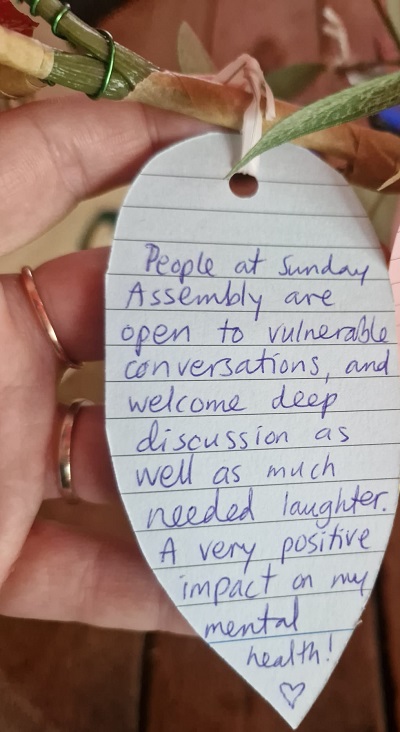 People at Sunday
Assembly are
open to vulnerable
conversations, and
welcome deep
discussion as
well as much
needed laughter.
A very positive
impact on my
mental
health!
♡